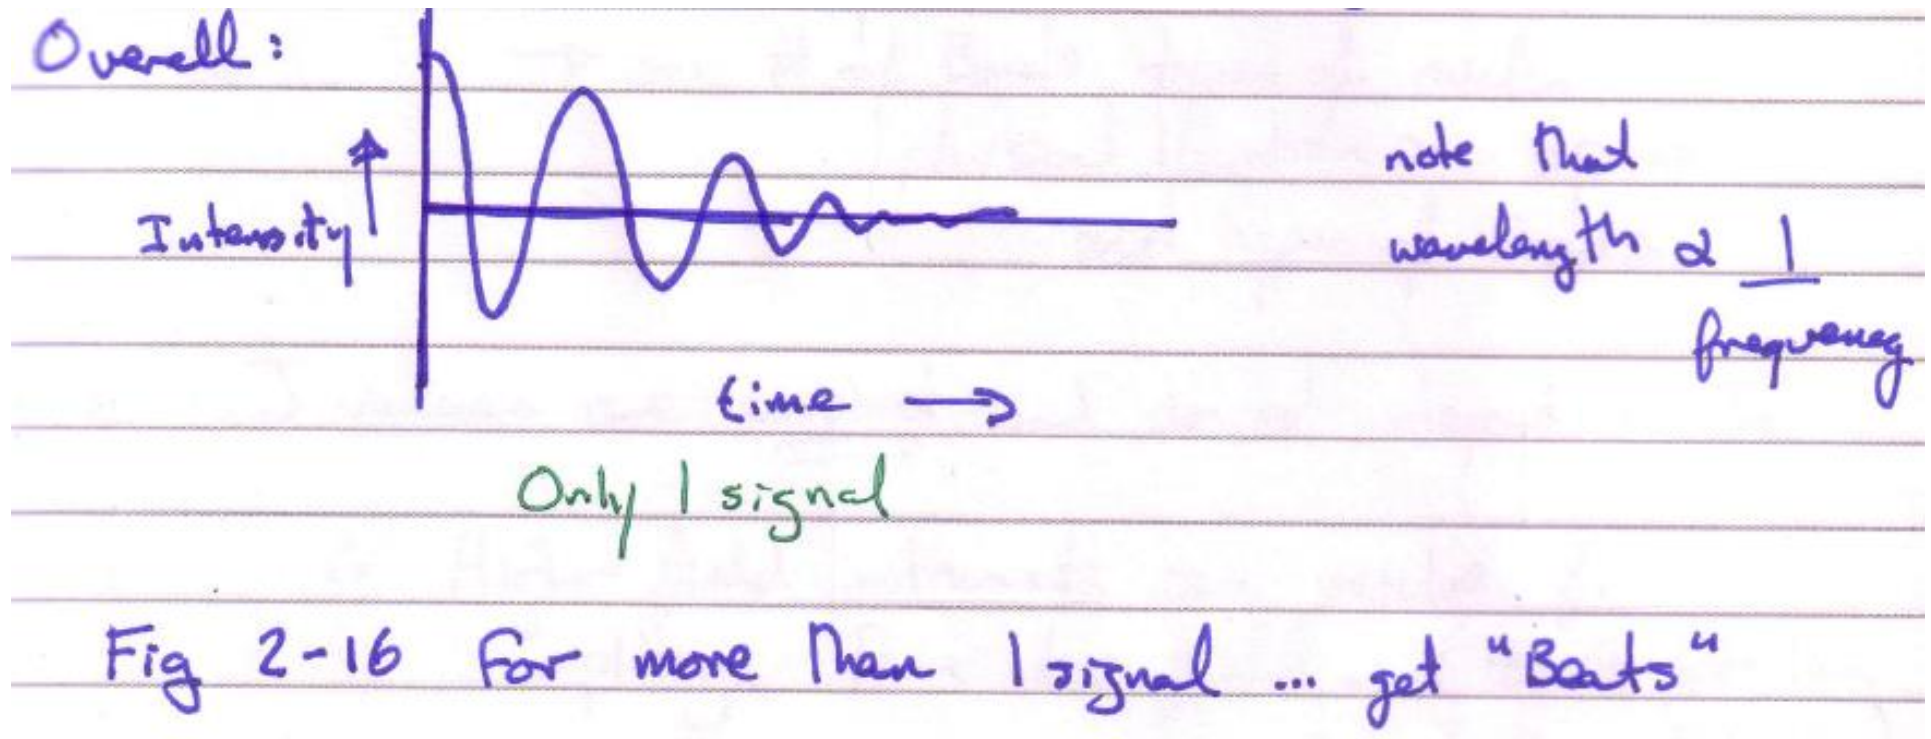 Overall:
Intensity
note that
wavelength α 1
frequency
time
Only 1 signal
Fig 2-16 for more than 1 signal ... get "Beats"